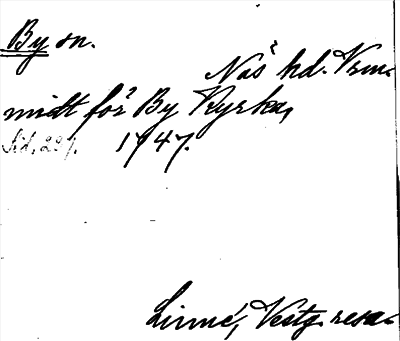 By sn.
Näs hd. Vrm.
midt för By Kyrka,
Sid. 291. 1747.
Linné, Vestg. resa